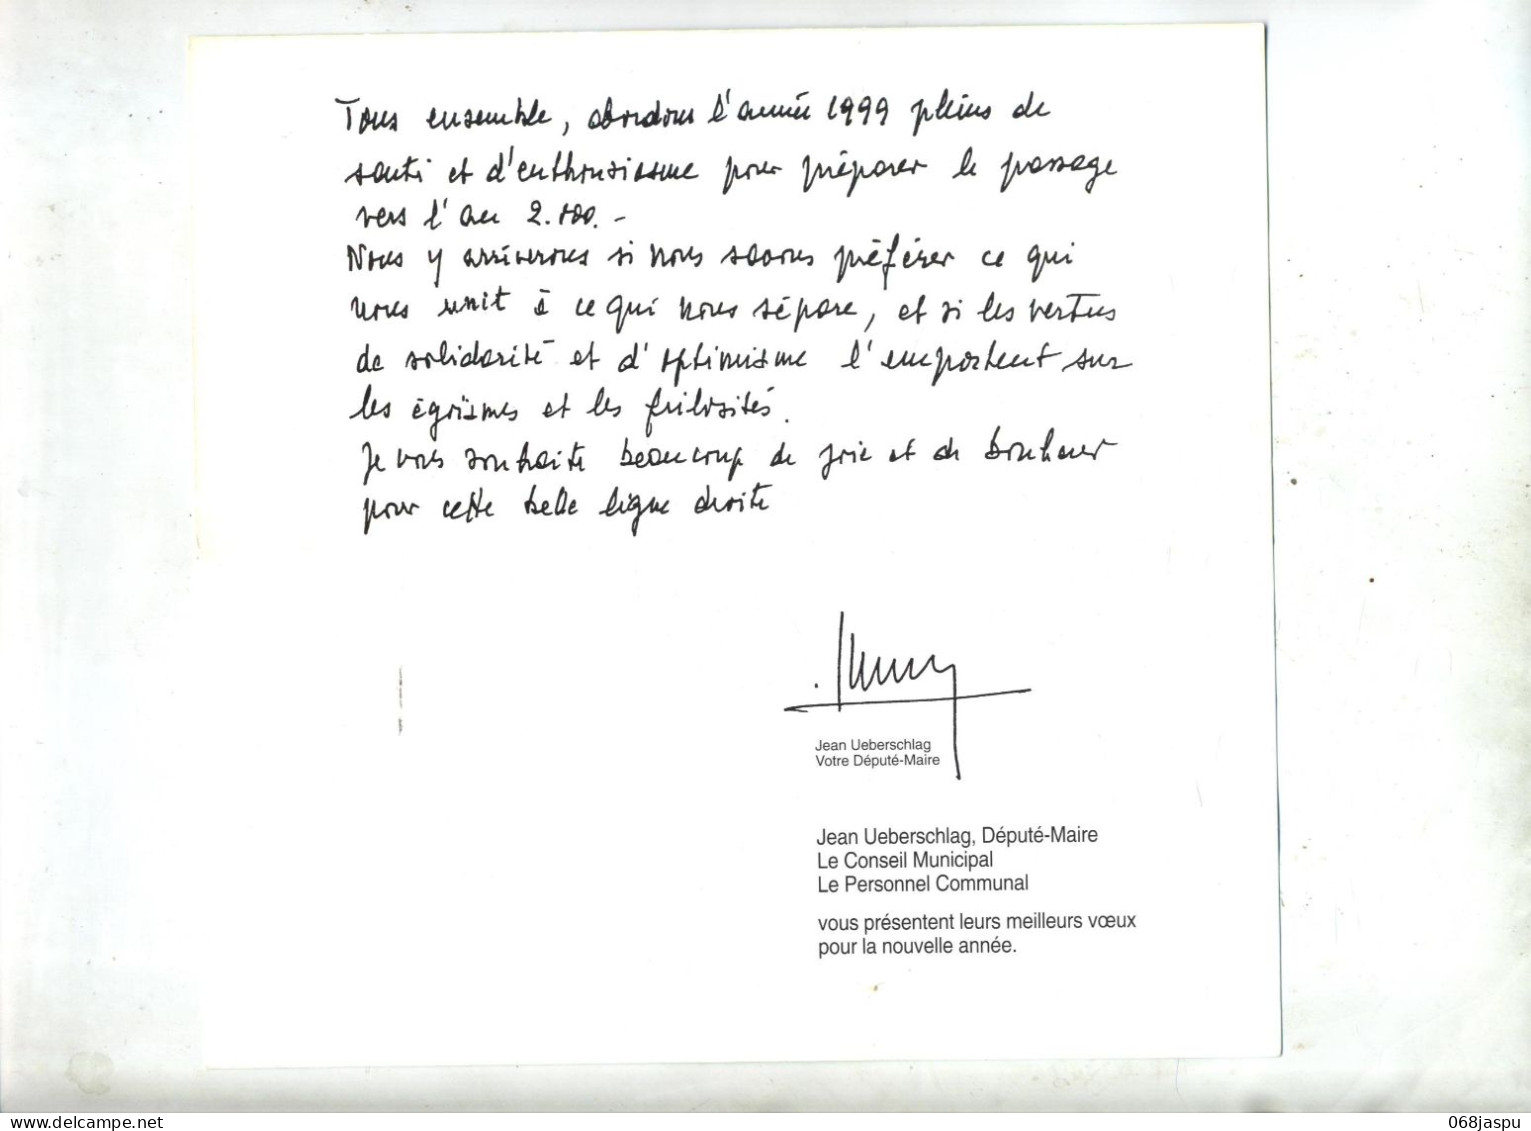 Tous ensemble, abordons l'année 1999 pleins de
santé et d'enthousiasme pour préparer le passage
vers l'an 2.000.-
Nous y arriverons si nous savons préférer ce qui
nous unit à ce qui nous sépare, et si les vertus
de solidarité et d'optimisme l'emportent sur
les égoïsmes et les frilosités.
Je vous souhaite beaucoup de joie et de bonheur
pour cette belle ligne droite
Jean Ueberschlag
Votre Député-Maire
Jean Ueberschlag, Député-Maire
Le Conseil Municipal
Le Personnel Communal
vous présentent leurs meilleurs vœux
pour la nouvelle année.
delcampe.net
068jaspu